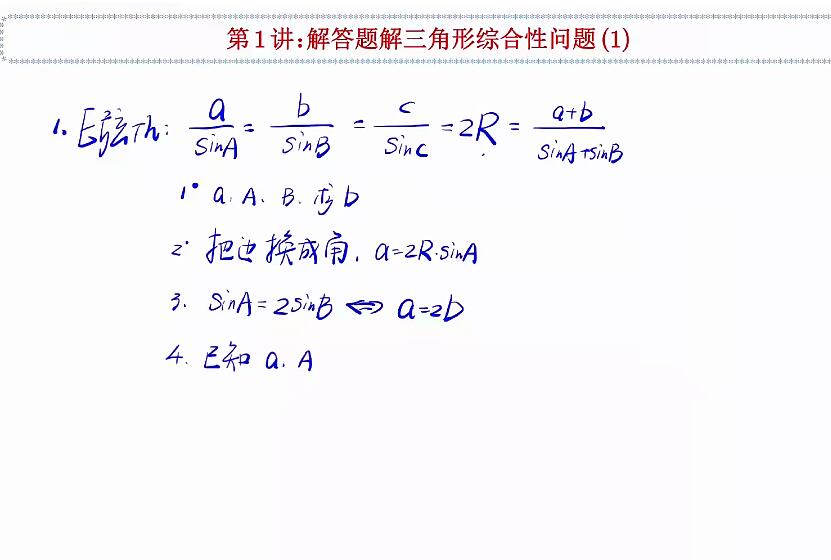 第1讲:解答题解三角形综合性问题(1)
1. 正弦Th: a/sinA = b/sinB = c/sinC = 2R = a+b/sinA+sinB
1° a. A、B. 求b
2° 把边换成角. a=2R·sinA
3. sinA=2sinB ⇔ a=2b
4. 已知 a. A